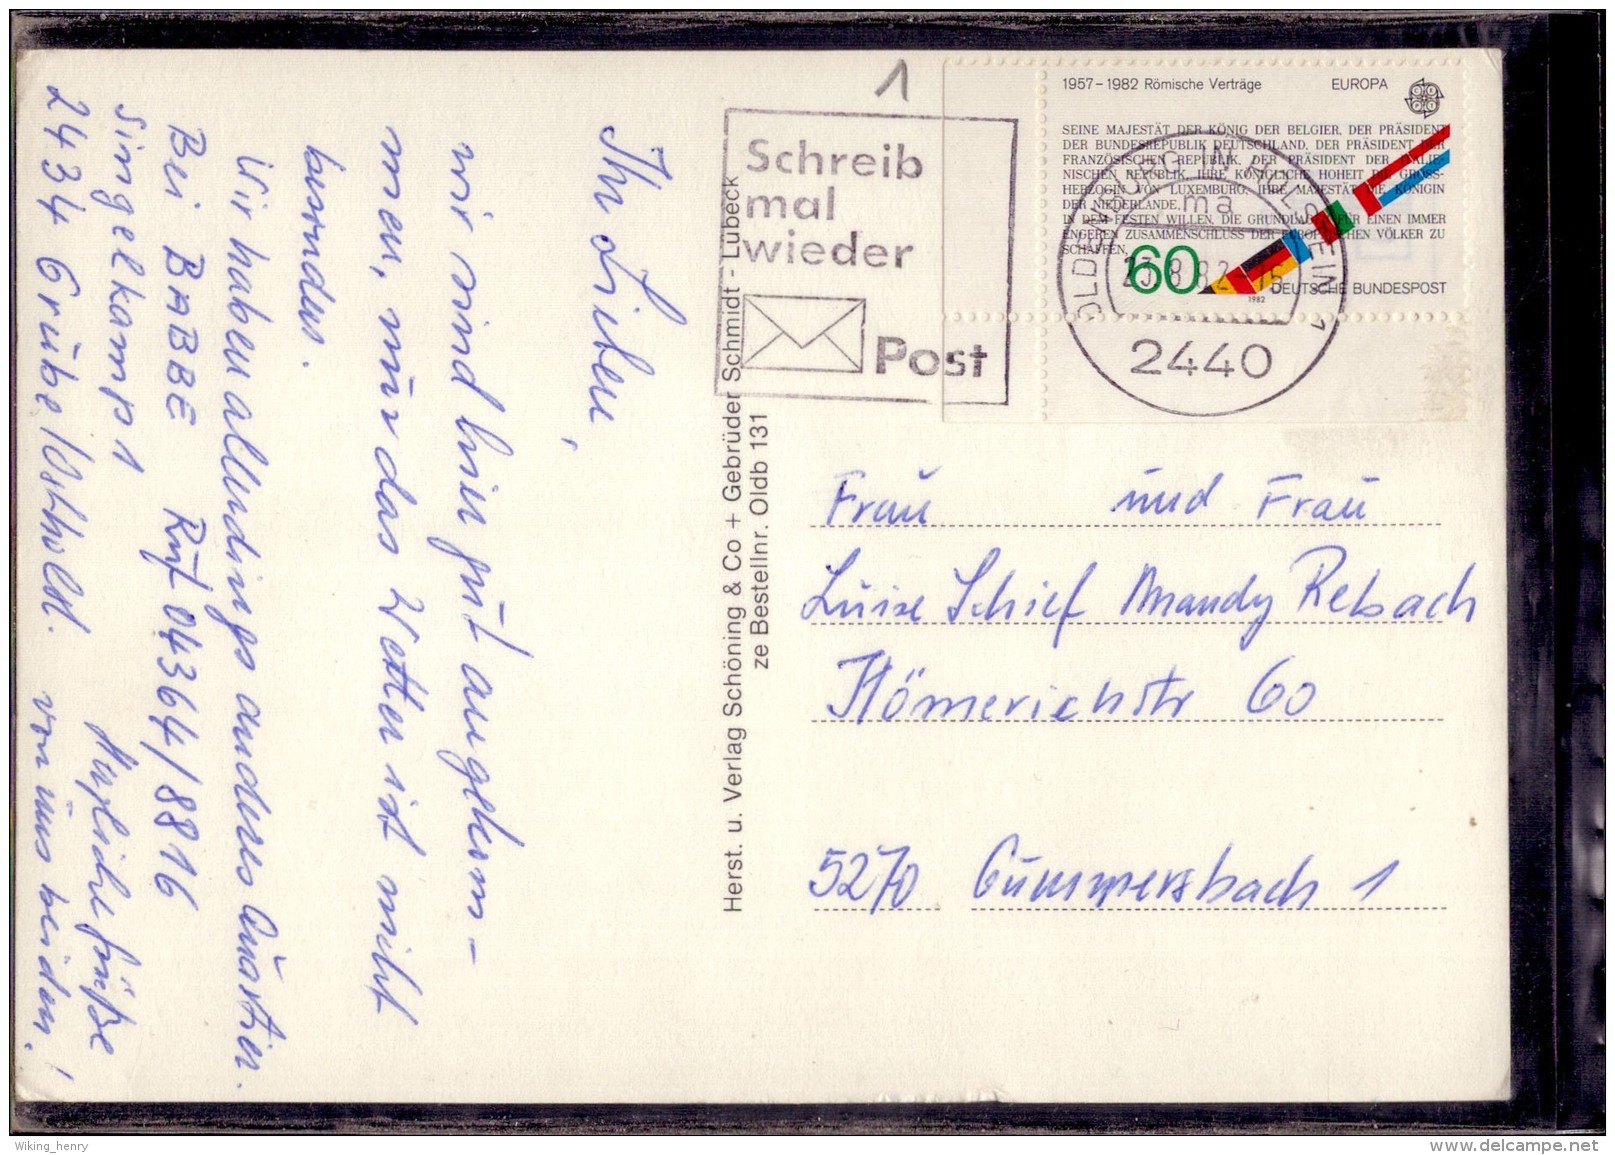 Ihr Lieben,
wir sind hier gut angekom-
men, nur das Wetter ist nicht
besonders.
Wir haben allerdings anderes Quartier.
Bei BABBE Ruf 04364/8816
Singelkamp 1
2434 Grube/Ostholst.
Herzliche Grüße
von uns beiden!
Herst. u. Verlag Schöning & Co + Gebrüder Schmidt - Lübeck
ze Bestellnr. Oldb 131
1
Schreib
mal
wieder
Post
1957-1982 Römische Verträge EUROPA
SEINE MAJESTÄT DER KÖNIG DER BELGIER, DER PRÄSIDENT
DER BUNDESREPUBLIK DEUTSCHLAND, DER PRÄSIDENT DER
FRANZÖSISCHEN REPUBLIK, DER PRÄSIDENT DER ITALIE-
NISCHEN REPUBLIK, IHRE KÖNIGLICHE HOHEIT DIE GROSS-
HERZOGIN VON LUXEMBURG, IHRE MAJESTÄT DIE KÖNIGIN
DER NIEDERLANDE,
IN DEM FESTEN WILLEN, DIE GRUNDLAGEN FÜR EINEN IMMER
ENGEREN ZUSAMMENSCHLUSS DER EUROPÄISCHEN VÖLKER ZU
SCHAFFEN,
60
1982
DEUTSCHE BUNDESPOST
OLDENBURG IN HOLSTEIN 1
ma
23.8.82-16
2440
Frau und Frau
Luise Schief Mandy Rebach
Hömerichstr 60
5270 Gummersbach 1
Wiking_henry
www.delcampe.net